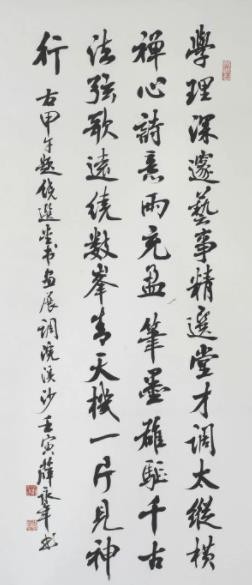 學理深邃藝事精選堂才調太縱橫
禪心詩意兩充盈筆墨雄驅千古
法弦歌遠繞數峯青天機一片見神
行
右甲午題饒選堂书畫展調浣溪沙壬寅薛永年书